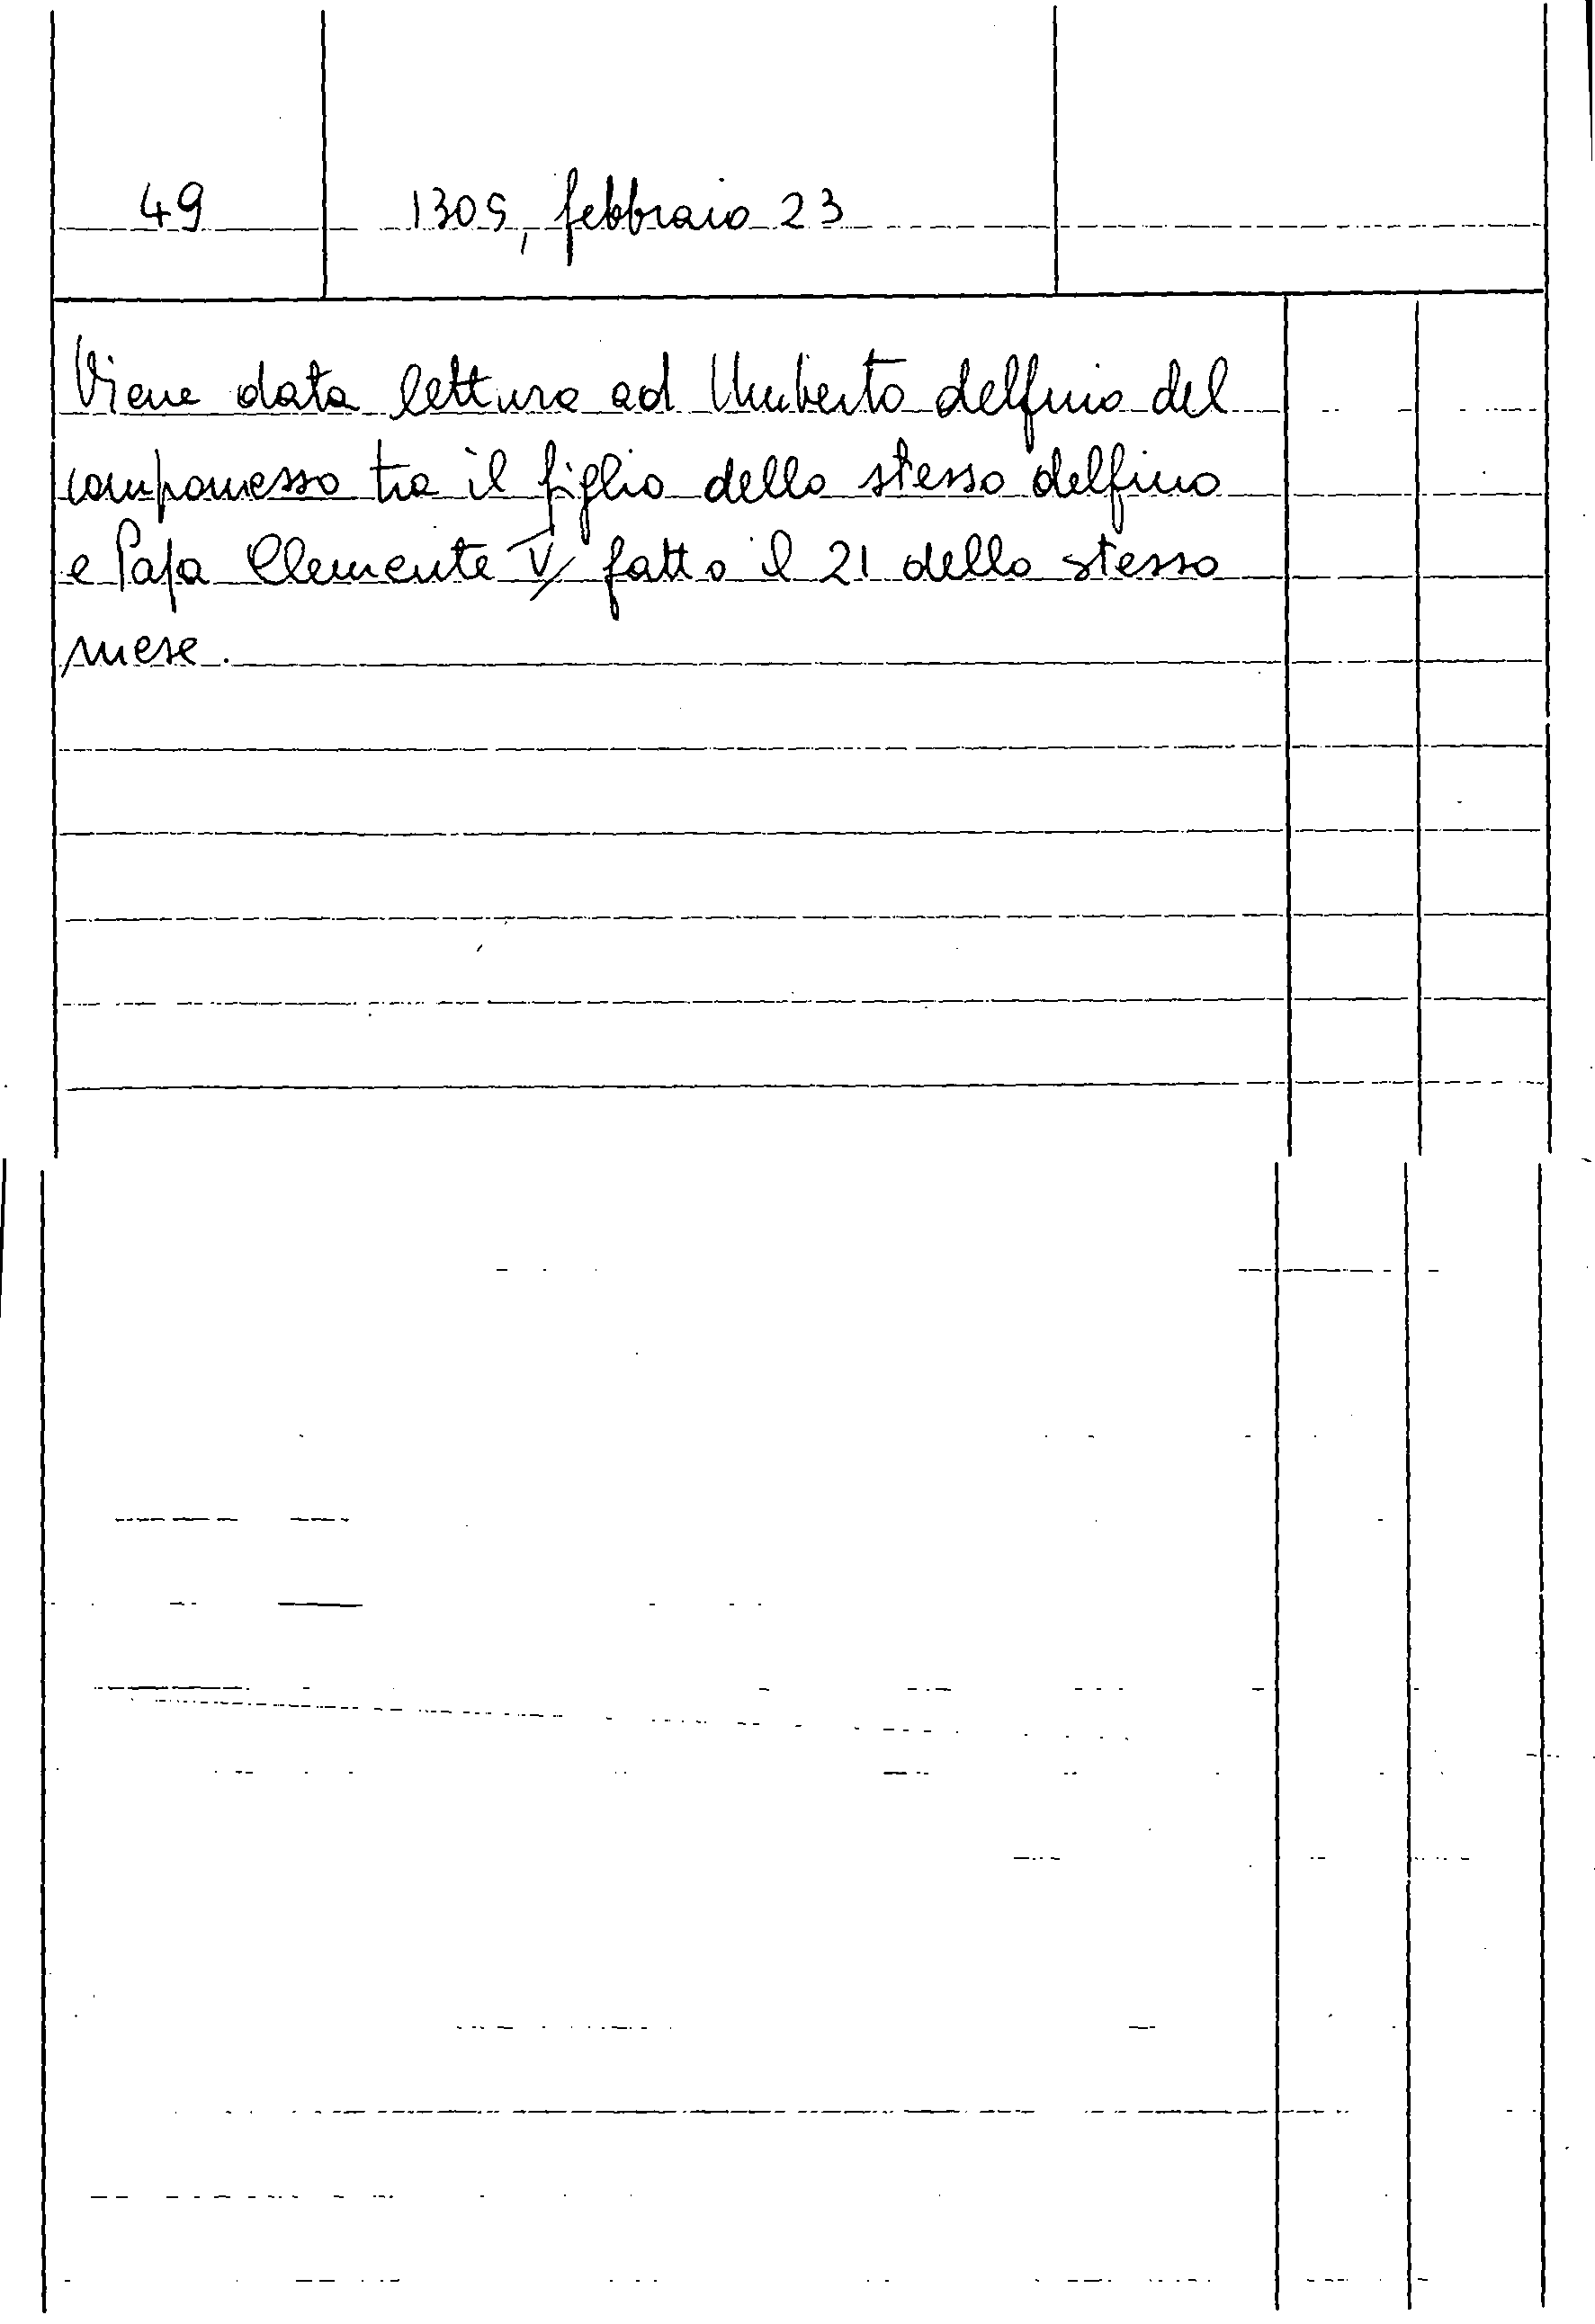 49
1305, febbraio 23
Viene data lettura ad Umberto delfino del
compromesso tra il figlio dello stesso delfino
e Papa Clemente V, fatto il 21 dello stesso
mese.